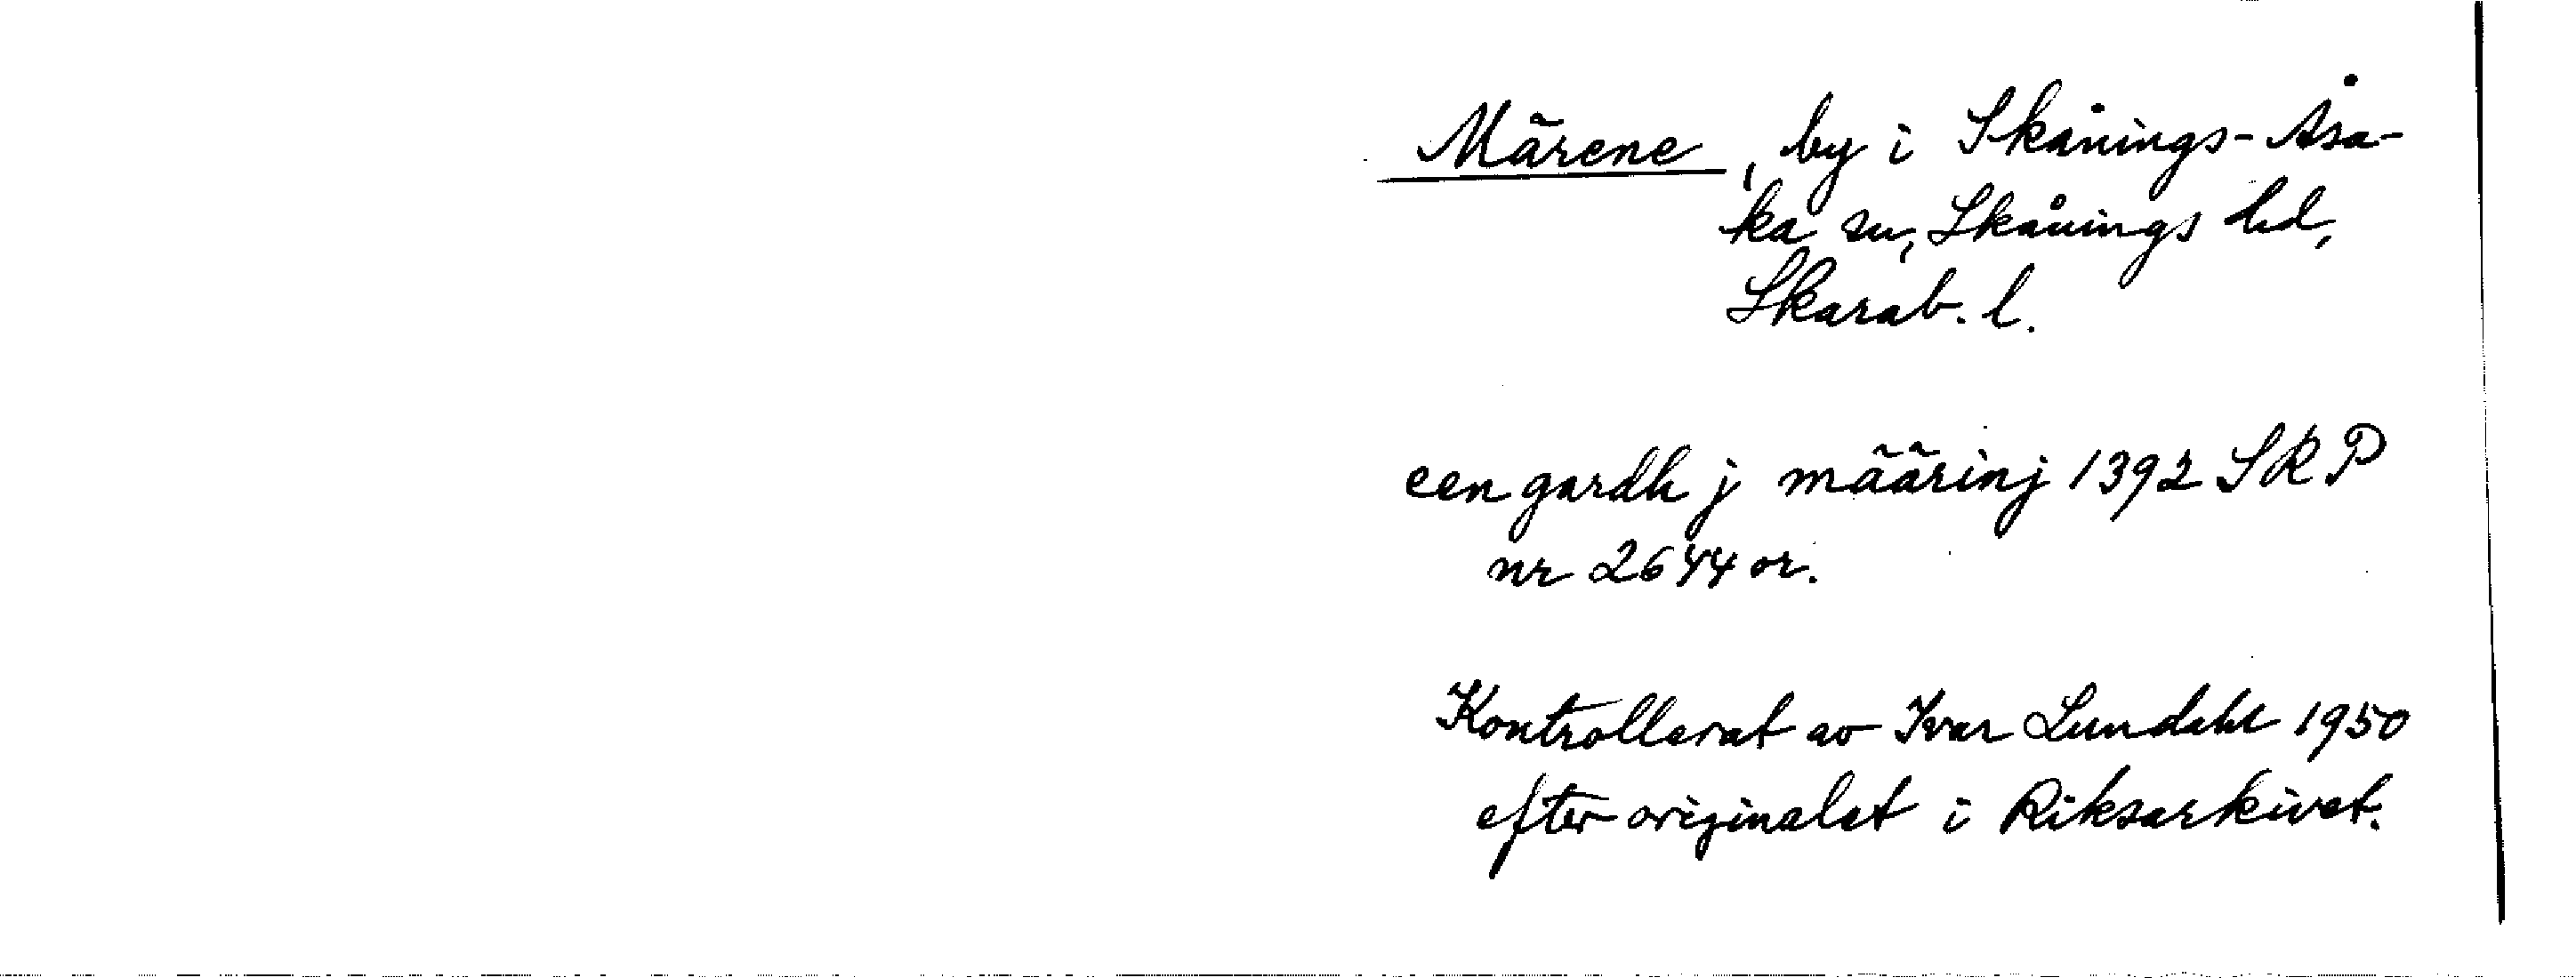 Märene, by i Skånings-Åsa-
ka sn, Skånings hd,
Skarab. l.
een gardh j määrinj 1392 SRP
nr 2644 or.
Kontrollerat av Ivar Lundahl 1950
efter originalet i Riksarkivet.